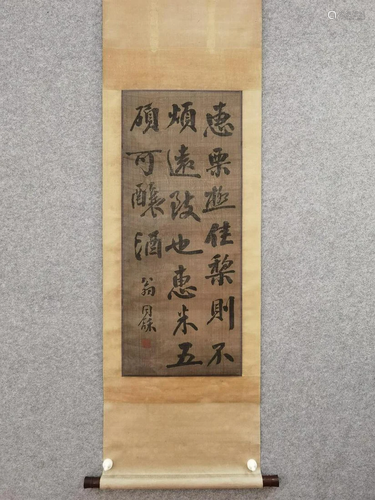 惠栗極佳棃則不
煩遠致也惠米五
碩可釀酒
翁同龢